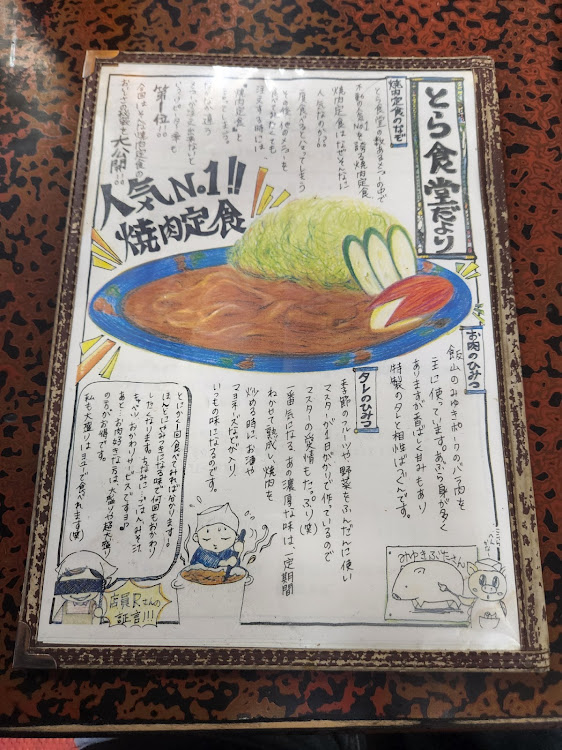 とら食堂だより
焼肉定食のなぞ
とら食堂の数あるメニューの中で
不動の人気No.1を誇る焼肉定食
焼肉定食はなぜそんなに
人気なのか??
第1位!!
今回はそんな焼肉定食の
おいしさの秘密を大公開!!
人気No.1!!
焼肉定食
お肉のひみつ
飯山のみゆきポークのバラ肉を
主に使ってます。あぶら身が多く
ありますが香ばしく甘みもあり
特製のタレと相性ばつぐんです。
タレのひみつ
季節のフルーツや野菜をふんだんに使い
マスターが1日がかりで作っているので
マスターの愛情もたっぷり(笑)
一番気になるあの濃厚な味は、一定期間
ねかせて熟成し、焼肉を
炒める時に、お酒や
マヨネーズなどが入り、
いつもの味になるのです。
とにかく1回食べてみれば分かります。
ほんとにやみつきになる味で何回もおかわり
したくなります。ちなみにごはん、みそ汁、
キャベツおかわりサービスですョ
あと、お肉好きな方は、大盛りや超大盛り
の方がお得です。
私も大盛りはヨユーで食べれます(笑)
店員Rさんの
証言!!!
みゆきぶたさん